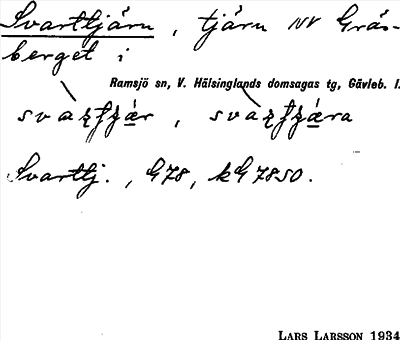 Svarttjärn, tjärn NV Gräs-
berget i
Ramsjö sn, V. Hälsinglands domsagas tg, Gävleb. l.
Svarttj., G78, kG7850.
LARS LARSSON 1934